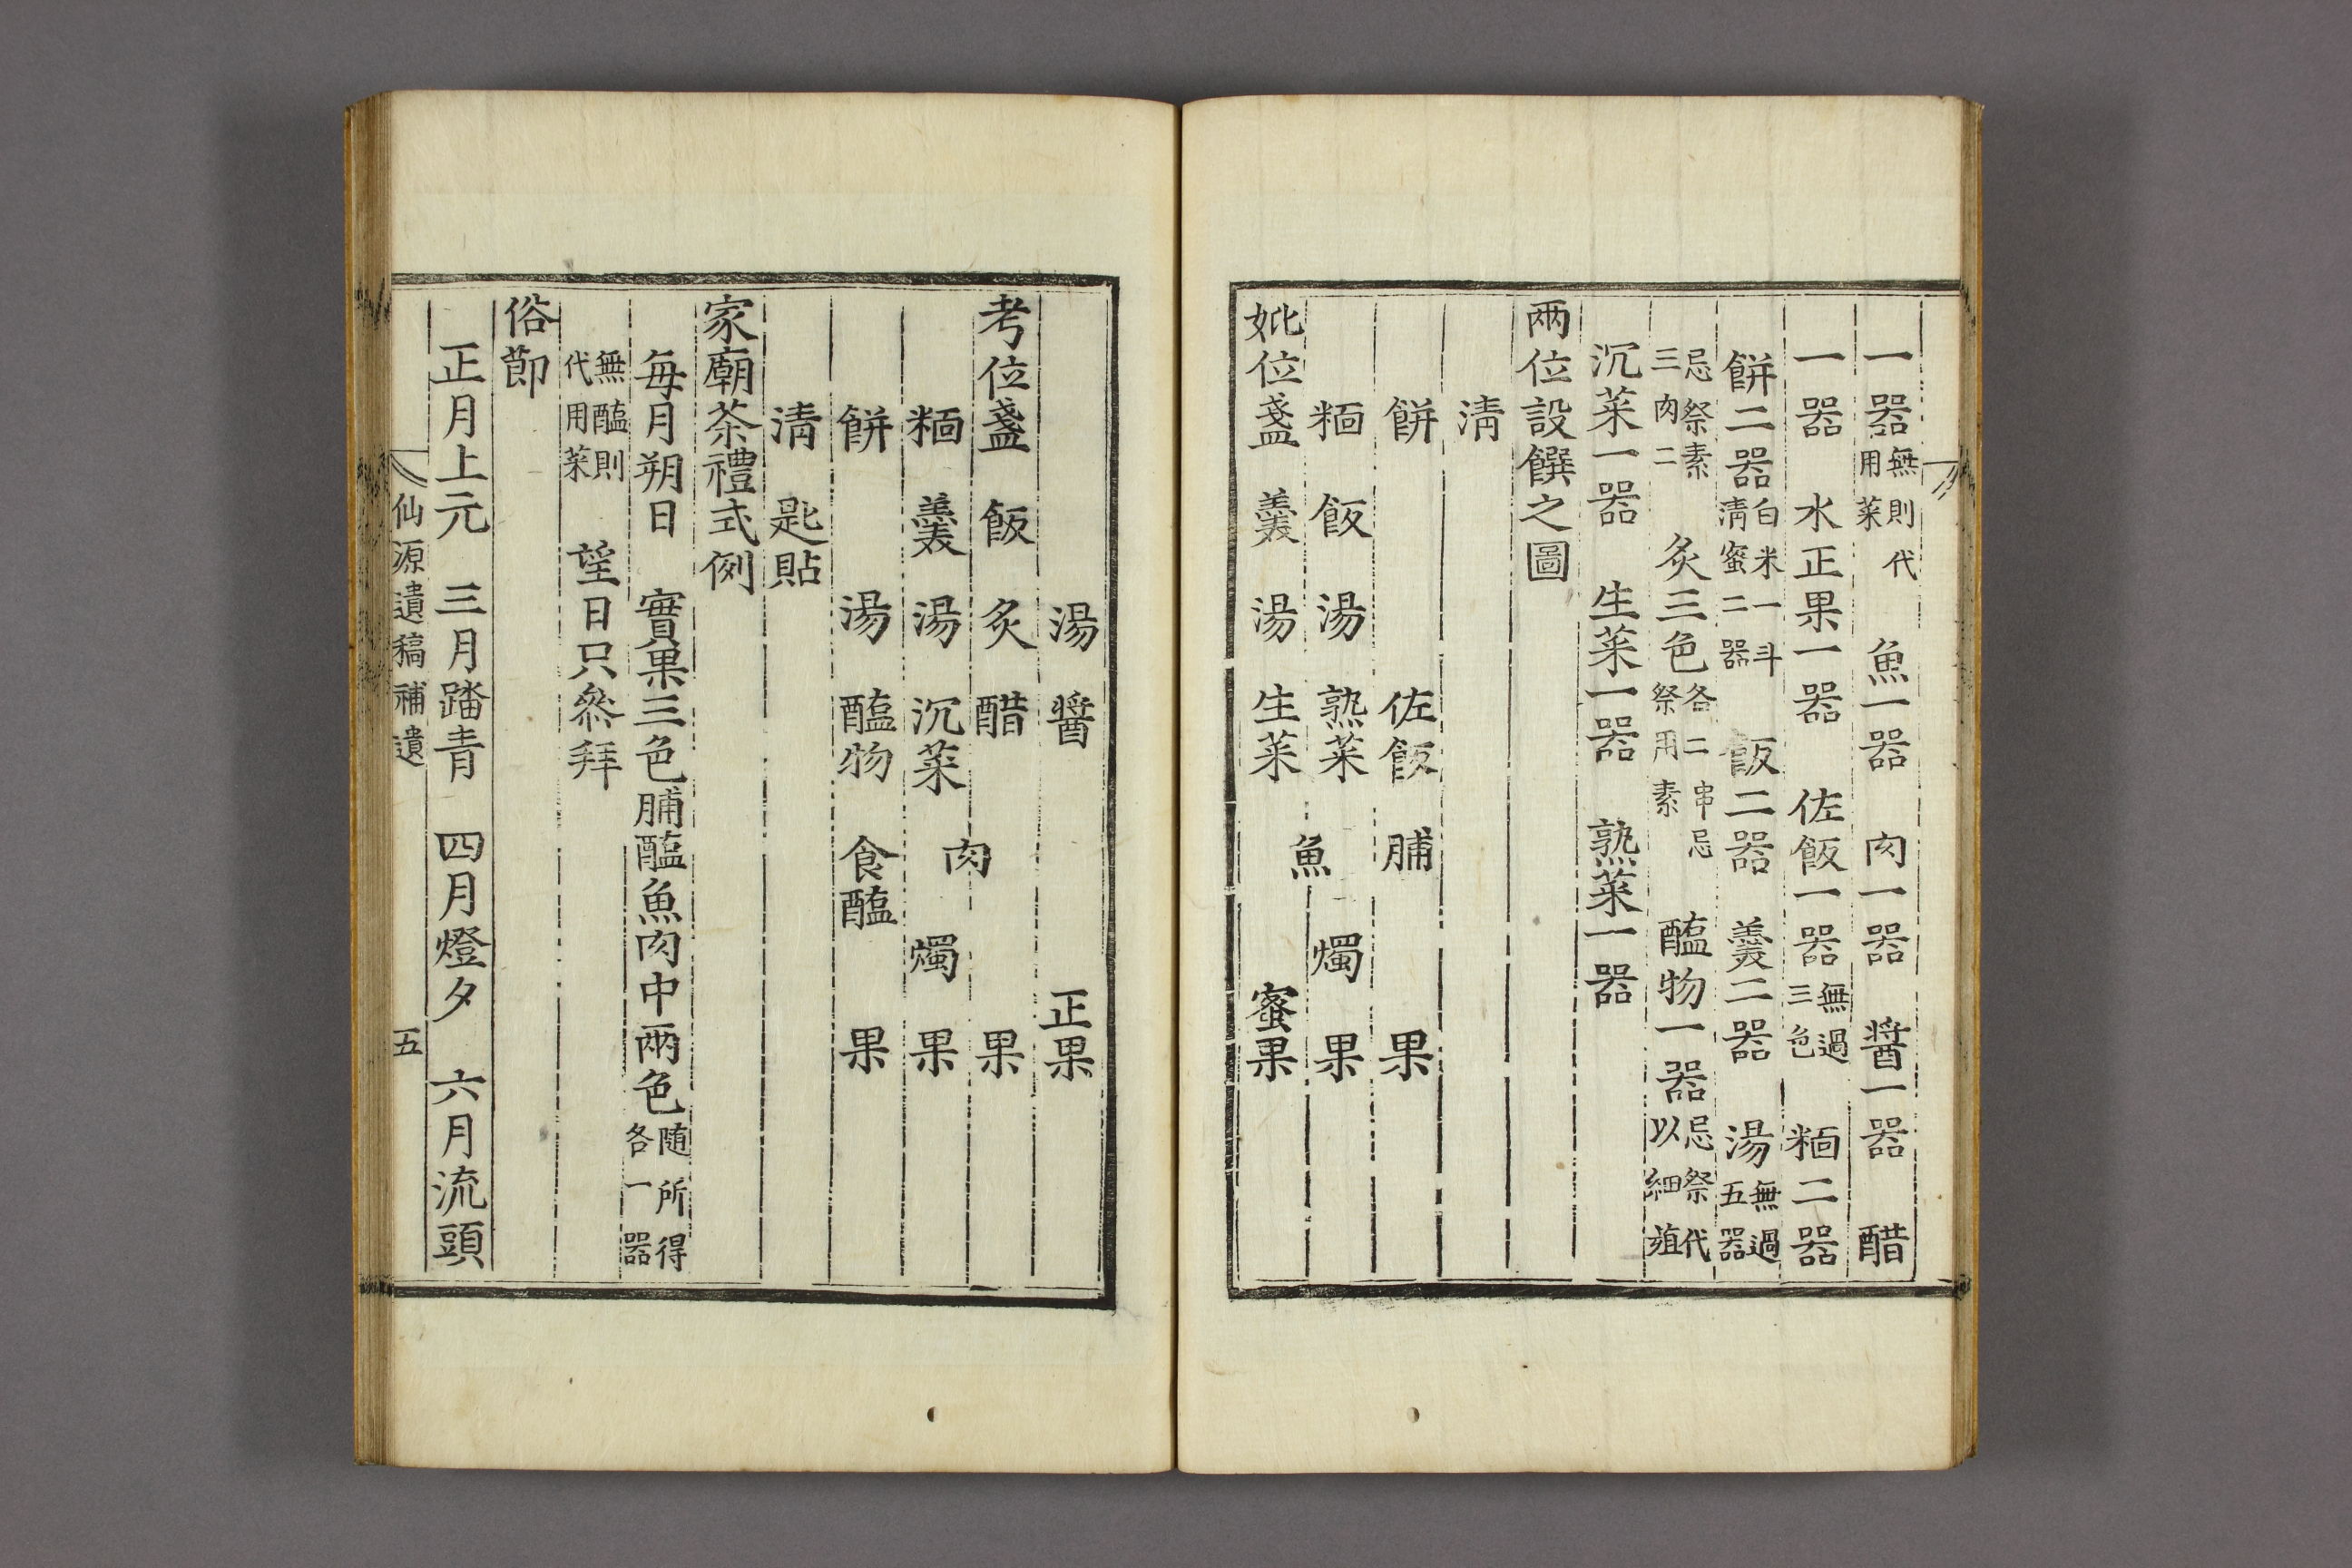 一器無則代用菜 魚一器 肉一器 醬一器 醋
一器 水正果一器 佐飯一器無過三色 粬二器
餠二器白米一斗淸蜜二器 飯二器 羹二器 湯無過五器
忌祭素三肉二 炙三色各二串忌祭用素 醢物一器忌祭代以細菹
沉菜一器 生菜一器 熟菜一器
兩位設饌之圖
淸
餠 佐飯 脯 果
粬 飯 湯 熟菜 燭 果
魚
妣位盞 羹 湯 生菜 蜜果
湯 醬 正果
考位盞 飯 炙 醋 果
肉
粬 羹 湯 沉菜 燭 果
餠 湯 醢物 食醢 果
淸 匙貼
家廟茶禮式例
每月朔日 實果三色脯醢魚肉中兩色随所得各一器
無醢則代用菜 望日只叅拜
俗節
正月上元 三月踏青 四月燈夕 六月流頭
仙源遺稿補遺 五